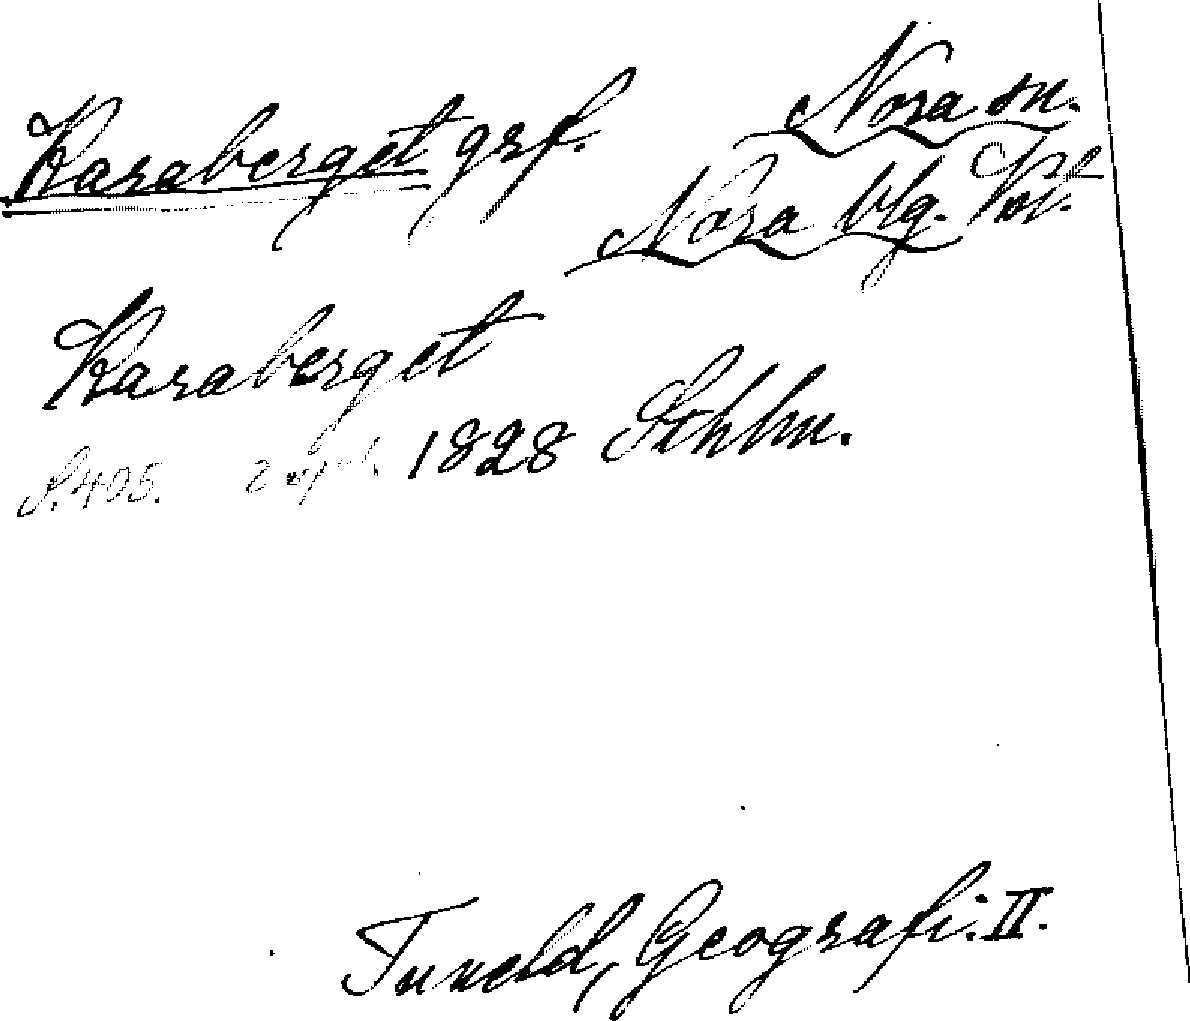 Karaberget grf.
Nora sn.
Nora blg. Vstl.
Karaberget
S. 405. 1828 Sthlm.
Tuneld, Geografi. II.